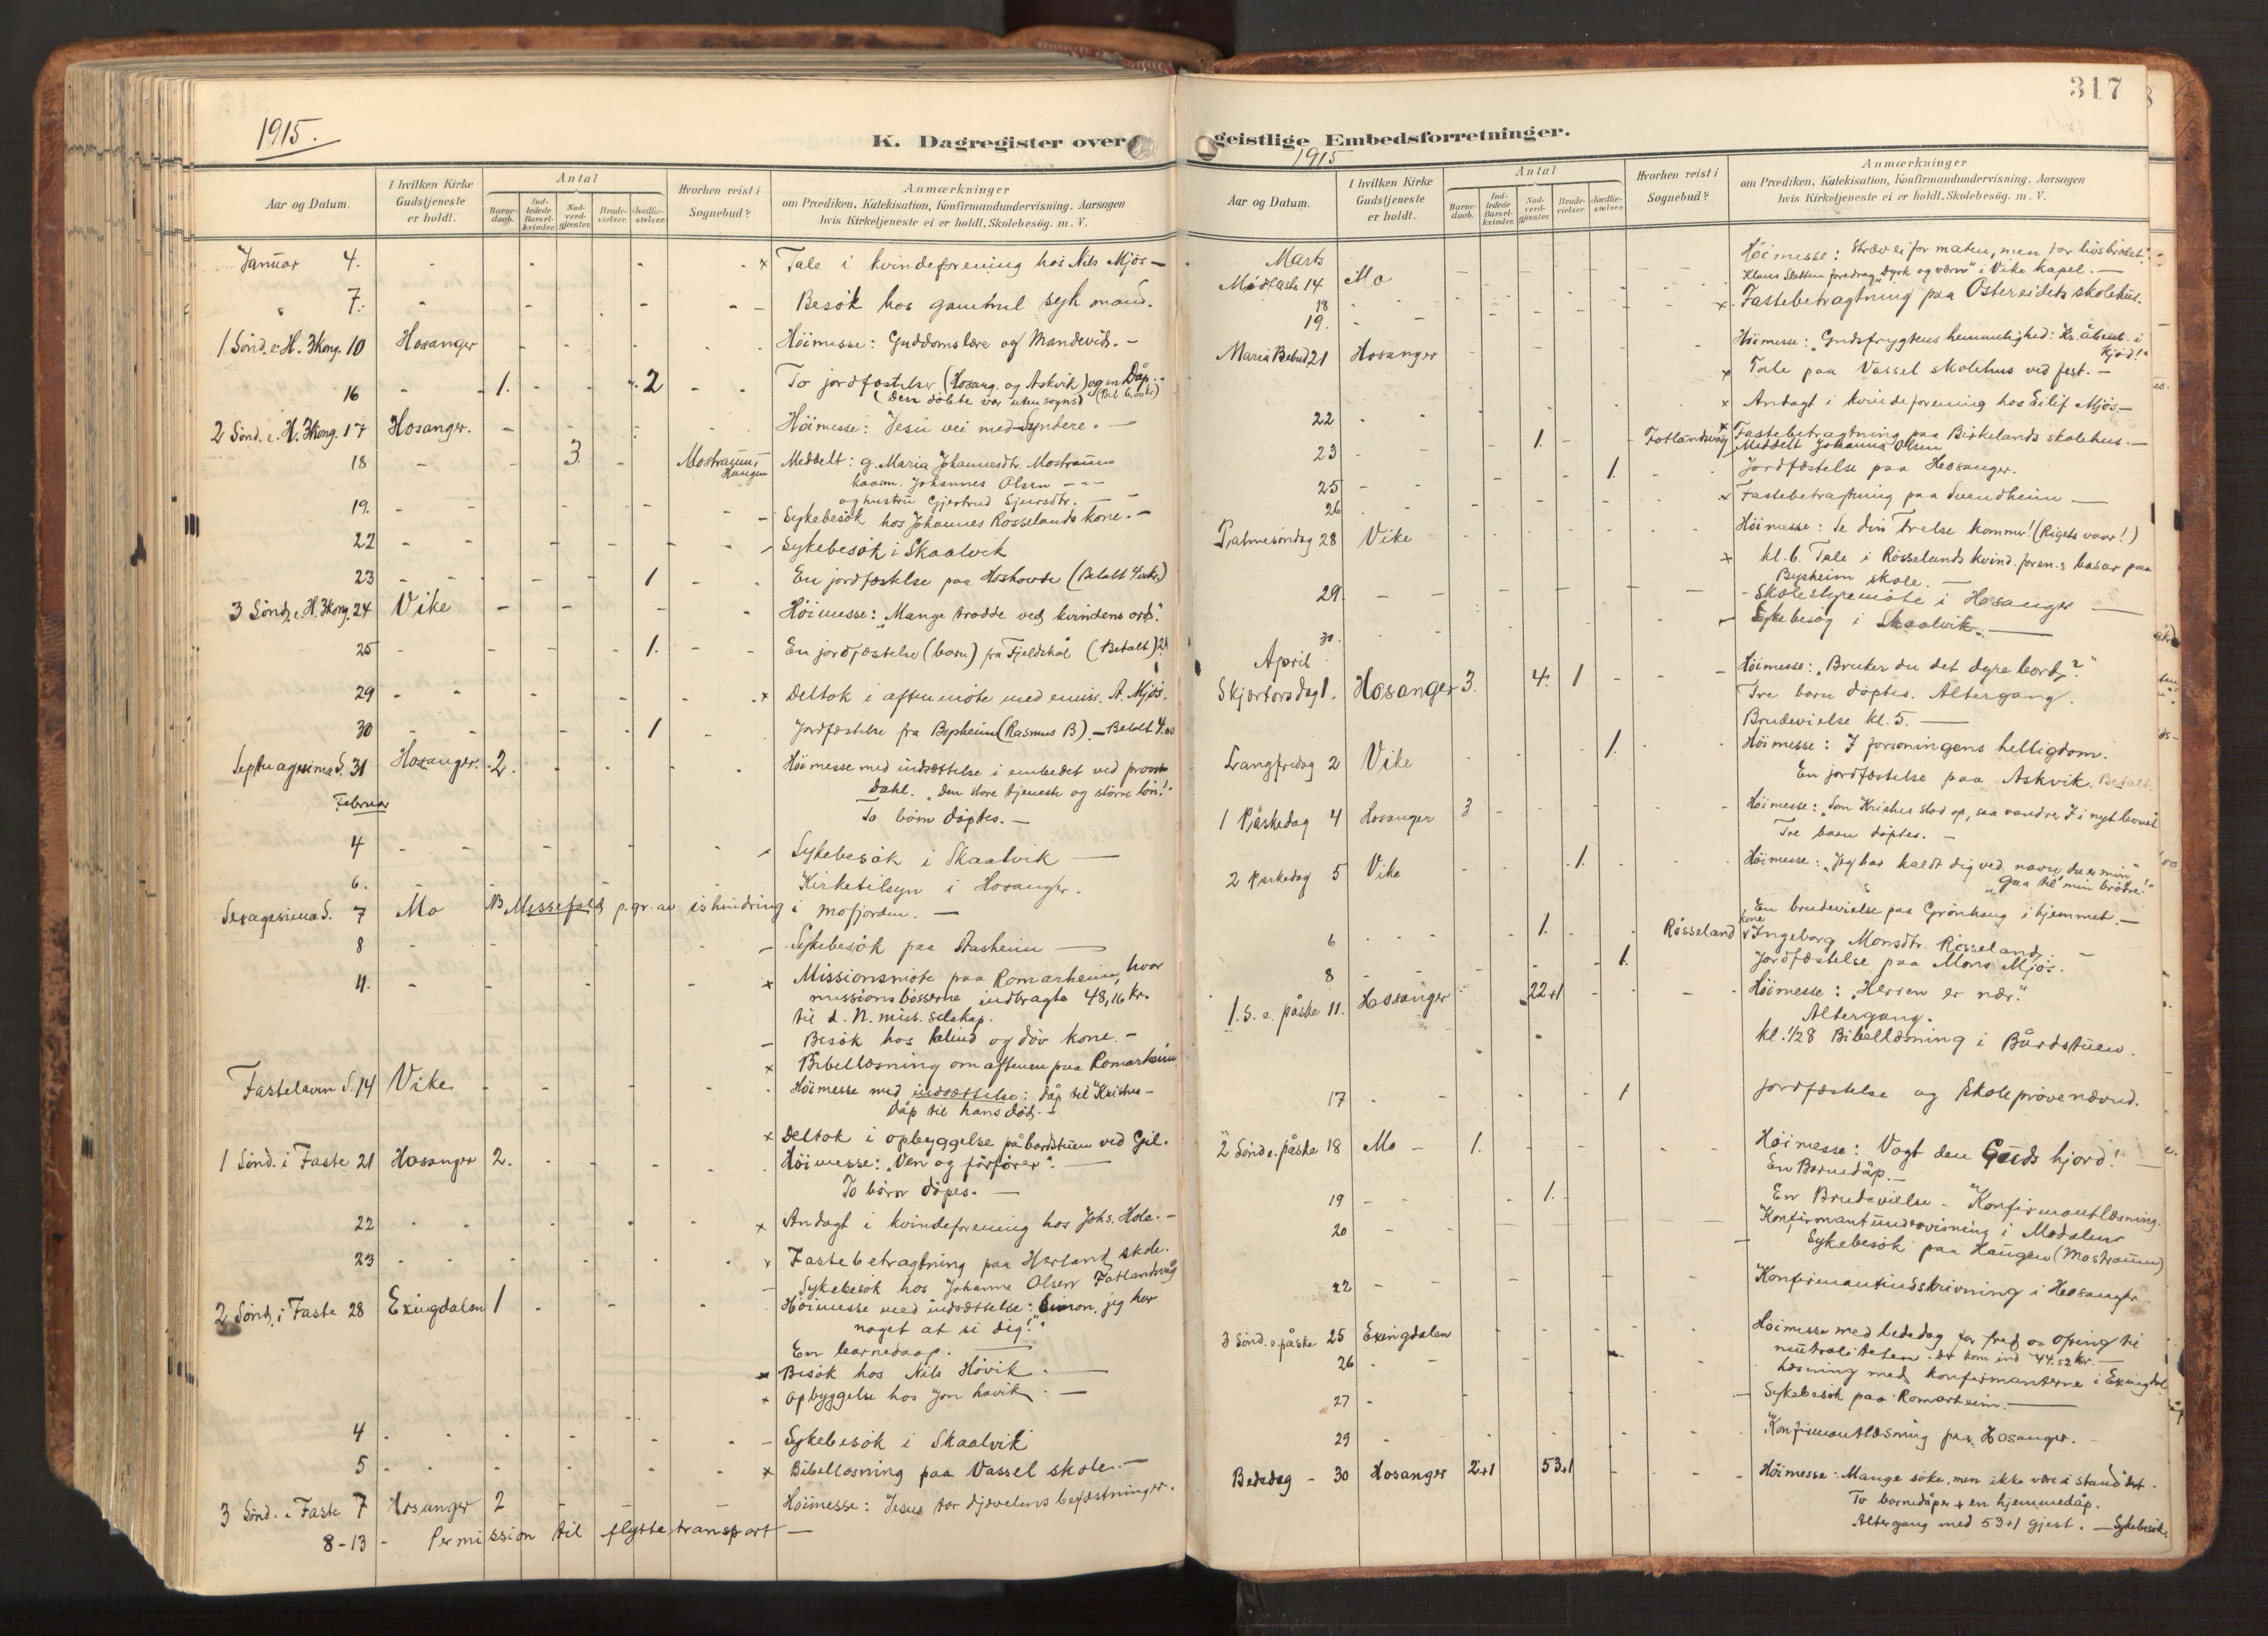 317
1915.
K. Dagregister over geistlige Embedsforretninger.
1915
Aar og Datum.
I hvilken Kirke Gudstjeneste er holdt.
Antal
Barnedaab.
Indledede Barselkvinder.
Nadverdgjæster.
Brudevielser.
Jordfæstelser.
Hvorhen reist i Sognebud?
Anmærkninger
om Prædiken, Katekisation, Konfirmandundervisning. Aarsagen
hvis Kirketjeneste ei er holdt, Skolebesög. m. V.
Januar 4. x Tale i kvindeforening hos Nils Mjös —
" 7. Besök hos gammel syk mand.
1 Sönd. e. H. 3kong. 10 Hosanger Höimesse: Guddomslære og Mandevid. —
16 1. 2 To jordfæstelser (Hosang. og Askvik) og en Dåp.
(Den döbte var utensogns)
2 Sönd. e. H. 3kong. 17 Hosanger. Höimesse: Jesu vei med Syndere. —
18 3 Mostraum, Haugen Meddelt: g. Maria Johannesdtr. Mostraum
kaarm. Johannes Olsen — " —
og hustru Gjertrud Sjursdtr. — —
19. Sykebesök hos Johannes Rosselands kone. —
22 Sykebesök i Skaalvik
23 1 En jordfæstelse paa Hoshovde (Betalt 4 kr.)
3 Sönd. e. H. 3kong. 24 Vike Höimesse: "Mange trodde ved kvindens ord."
25 1. En jordfæstelse (barn) fra Fjeldskål (Betalt) 2
29 x Deltok i aftenmöte med emiss. A. Mjös.
30 1 Jordfæstelse fra Bysheim (Rasmus B). — Betalt 4.00
Septuagesima S. 31 Hosanger. 2. Höimesse med indsættelse i embedet ved provst
Dahl. "Den store tjeneste og större lön!"
To börn döptes. —
Februar
4 Sykebesök i Skaalvik —
6. Kirketilsyn i Hosanger.
Sexagesima S. 7 Mo NB Messefald p. gr. av ishindring i Mofjorden. —
8 — Sykebesök paa Aasheim —
11. x Missionsmöte paa Romarheim, hvor
missionsbösserne indbragte 48,16 kr.
til d. N. miss. selskap.
— Besök hos blind og döv kone. —
x Bibellæsning om aftenen paa Romarheim
Fastelaven S. 14 Vike Höimesse med indsættelse: dåp til Kristus —
dåp til hans död. —
x Deltok i opbyggelse på bårdstuen ved Gil.
1 Sönd. i Faste 21 Hosanger 2. Höimesse: "Ven og förförer". —
To börn döpes. —
22 x Andagt i kvindeforening hos Johs. Hole. —
23 x Fastebetragtning paa Herland skole.
— Sykebesök hos Johanne Olsen Fotlandsvåg
2 Sönd. i Faste 28 Exingdalen 1 Höimesse med indsættelse: Simon, jeg har
noget at si dig!"
En barnedaap. —
Besök hos Nils Hövik. —
x Opbyggelse hos Jon hövik. —
4 — Sykebesök i Skaalvik
5 x Bibellæsning paa Vassel skole. —
3 Sönd. i Faste 7 Hosanger 2 Höimesse: Jesus tar djævelens befæstninger.
8-13 - Permission til flyttetransport —
Aar og Datum.
I hvilken Kirke Gudstjeneste er holdt.
Antal
Barnedaab.
Indledede Barselkvinder.
Nadverdgjæster.
Brudevielser.
Jordfæstelser.
Hvorhen reist i Sognebud?
Anmærkninger
om Prædiken, Katekisation, Konfirmandundervisning. Aarsagen
hvis Kirketjeneste ei er holdt, Skolebesög. m. V.
Marts
Midfaste 14 Mo Höimesse: Stræv ei for maten, men for livsbrödet."
Klaus Sletten foredrag "Dyrk og værn" i Vike kapel. —
18 x Fastebetragtning paa Ostereidets skolehus.
19.
Maria Bebud. 21 Hosanger Höimesse: "Gudsfrygtens hemmelighed: Kr. åbenb. i
kjød!"
x Tale paa Vassel skolehus ved fest. —
22 x Andagt i kvindeforening hos Eilif Mjös. —
23 1. Fotlandsvåg x Fastebetragtning paa Birkelands skolehus. —
Meddelt Johanna Olsen
25 1. Jordfæstelse paa Hosanger.
26 x Fastebetragtning paa Svendheim —
Palmesöndag 28 Vike Höimesse: Se din Frelse kommer! (Rigets vaar!)
x kl. 6. Tale i Rosselands kvind. foren.s basar paa
Bysheim skole. —
29. Skolestyremöte i Hosanger —
30. Sykebesög i Skaalvik. —
April
Skjærtorsdag 1. Hosanger 3. 4. 1 Höimesse: "Bruker du det dyre bord?"
Tre barn döptes. Altergang.
Brudevielse kl. 5. —
Langfredag 2 Vike 1. Höimesse: I forsoningens helligdom.
En jordfæstelse paa Askvik. Betalt.
1 Påskedag 4 Hosanger 3 Höimesse: "Som Kristus stod op, saa vandrer I i nyt levnet"
Tre barn döptes. —
2 Påskedag 5 Vike 1. Höimesse: "Jeg har kaldt dig ved navn, du er min"
"Gaa til min brödre!"
En brudevielse paa Grönhaug i hjemmet. —
6 1. Rosseland kone Ingeborg Monsdtr. Rosseland. —
8 1. Jordfæstelse paa Mons Mjös.
1. S. e. påske 11. Hosanger 22+1 Höimesse: "Herren er nær."
Altergang.
kl. 1/28 Bibellæsning i Bårdstuen.
17 1 Jordfæstelse og Skoleprövenævnd.
2 Sönd e. påske 18 Mo — 1. Höimesse: Vogt den Guds hjord! —
En Barnedåp. —
19 1. En Brudevielse - Konfirmantlæsning.
20 Konfirmantundervisning i Modalen
Sykebesök paa Haugen (Mostraum)
22 Konfirmantindskrivning i Hosanger.
3 Sönd. e. påske 25 Exingdalen Höimesse med bededag for fred og ofring til
nøitraliteten. Der kom ind 44.52 kr. —
26 Læsning med konfirmanterne i Exingdal
27 — Sykebesök paa Romarheim. —
29 Konfirmantlæsning paa Hosanger.
Bededag - 30 Hosanger 2+1 53+1 Höimesse: Mange söke, men ikke være i stand dert.
To barnedåper + en hjemmedåp.
Altergang med 53+1 gjest. — Sykebesök.